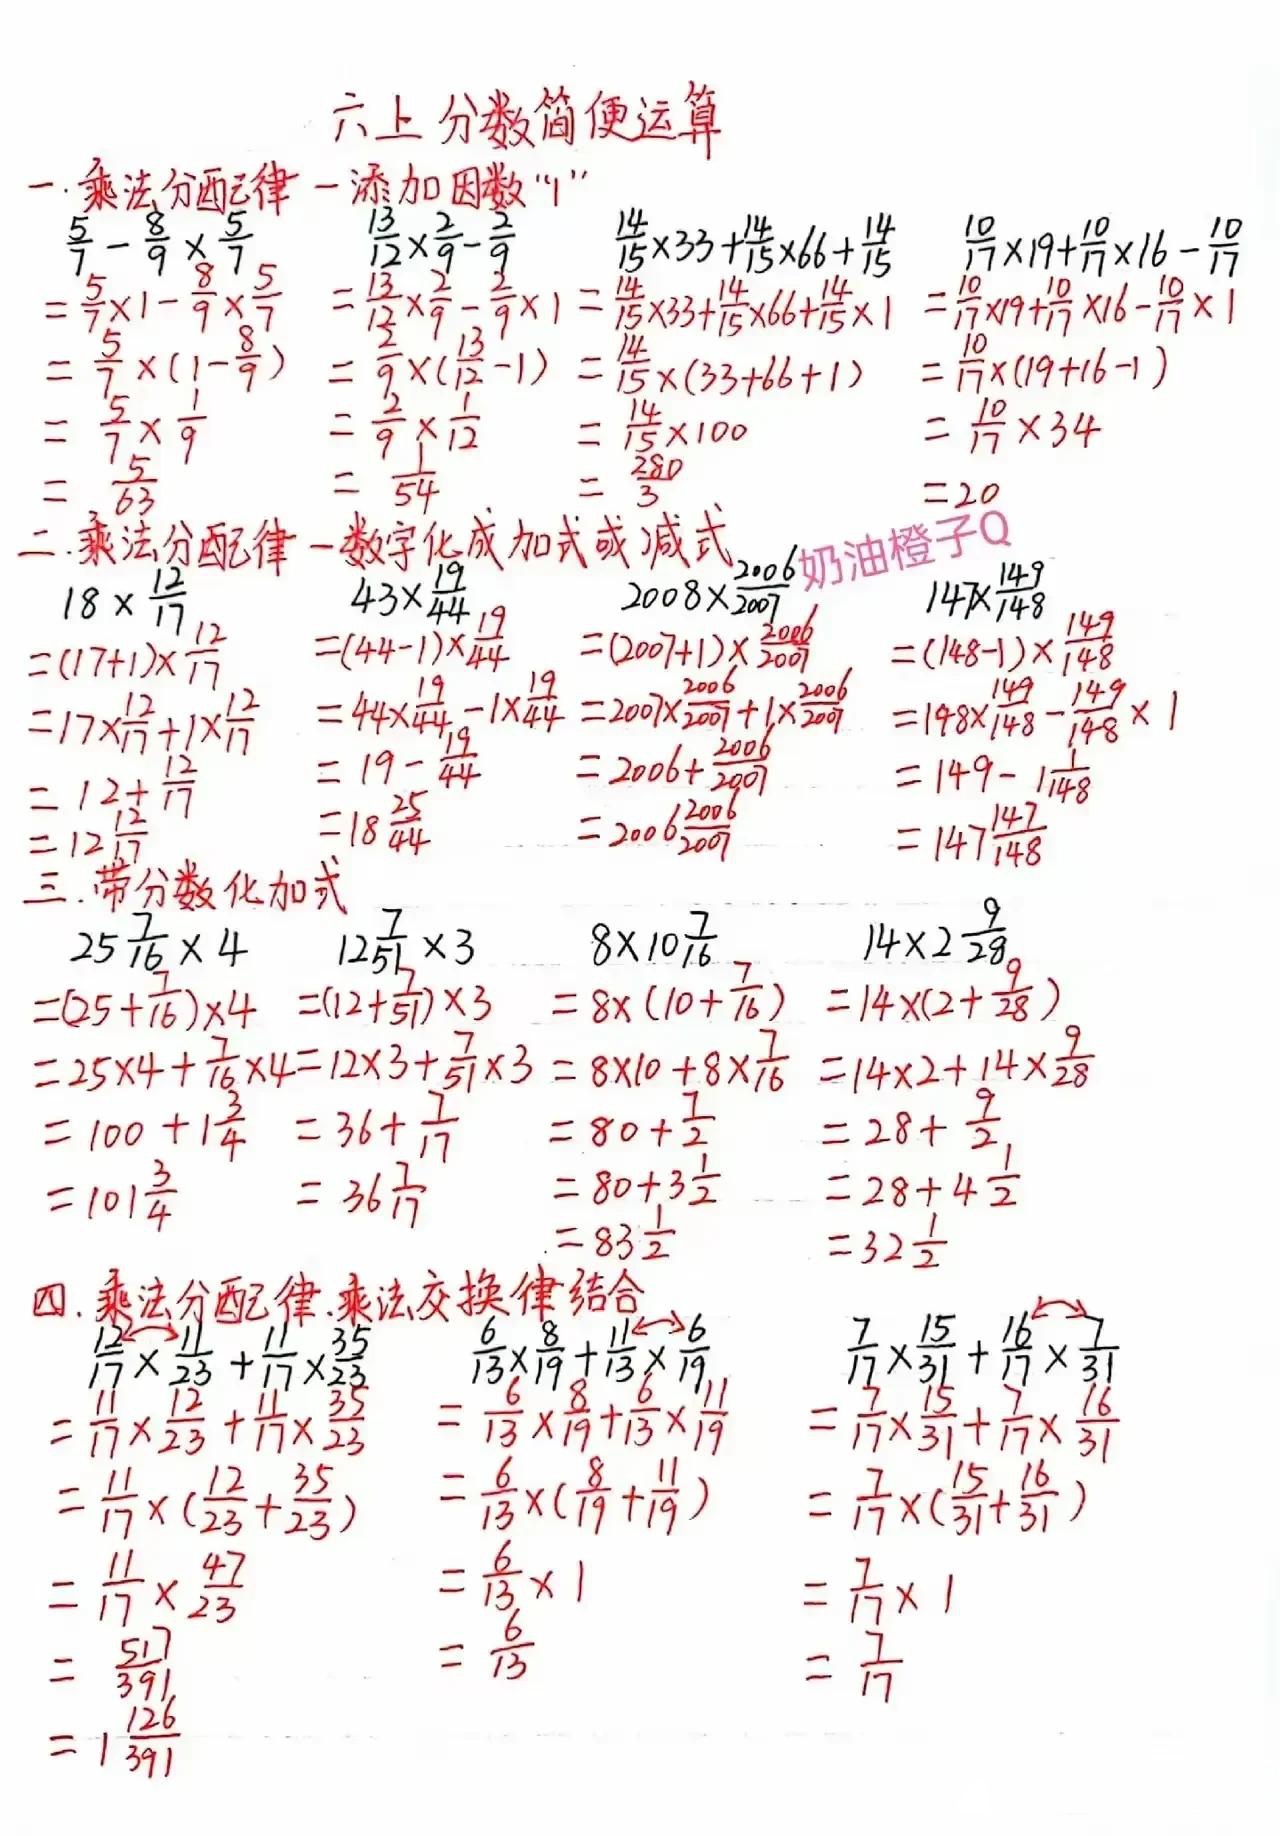 六上分数简便运算
一.乘法分配律-添加因数"1"
5/7 - 8/9 × 5/7
=5/7×1-8/9×5/7
=5/7×(1-8/9)
=5/7×1/9
=5/63
13/12×2/9-2/9
=13/12×2/9-2/9×1
=2/9×(13/12-1)
=2/9×1/12
=1/54
14/15×33+14/15×66+14/15
=14/15×33+14/15×66+14/15×1
=14/15×(33+66+1)
=14/15×100
=280/3
10/17×19+10/17×16-10/17
=10/17×19+10/17×16-10/17×1
=10/17×(19+16-1)
=10/17×34
=20
二.乘法分配律-数字化成加式或减式
奶油橙子Q
18×12/17
=(17+1)×12/17
=17×12/17+1×12/17
=12+12/17
=12 12/17
43×19/44
=(44-1)×19/44
=44×19/44-1×19/44
=19-19/44
=18 25/44
2008×2006/2007
=(2007+1)×2006/2007
=2007×2006/2007+1×2006/2007
=2006+2006/2007
=2006 2006/2007
147×149/148
=(148-1)×149/148
=148×149/148-149/148×1
=149-1 1/148
=147 147/148
三.带分数化加式
25 7/16×4
=(25+7/16)×4
=25×4+7/16×4
=100+1 3/4
=101 3/4
12 7/51×3
=(12+7/51)×3
=12×3+7/51×3
=36+7/17
=36 7/17
8×10 7/16
=8×(10+7/16)
=8×10+8×7/16
=80+7/2
=80+3 1/2
=83 1/2
14×2 9/28
=14×(2+9/28)
=14×2+14×9/28
=28+9/2
=28+4 1/2
=32 1/2
四.乘法分配律.乘法交换律结合
12/17×11/23+11/17×35/23
=11/17×12/23+11/17×35/23
=11/17×(12/23+35/23)
=11/17×47/23
=517/391
=1 126/391
6/13×8/19+11/13×6/19
=6/13×8/19+6/13×11/19
=6/13×(8/19+11/19)
=6/13×1
=6/13
7/17×15/31+16/17×7/31
=7/17×15/31+7/17×16/31
=7/17×(15/31+16/31)
=7/17×1
=7/17